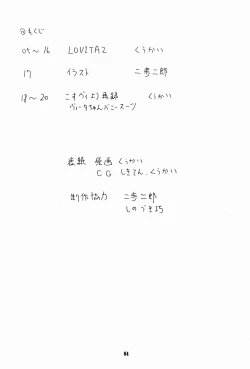 @もくじ
05～16 LOVITA2 くうかい
17 イラスト 二歩二郎
18～20 こすヴィより再録 くうかい
ヴィータちゃんバニースーツ
表紙 原画 くうかい
CG しきてん、くうかい
制作協力 二歩二郎
しのづき巧
04